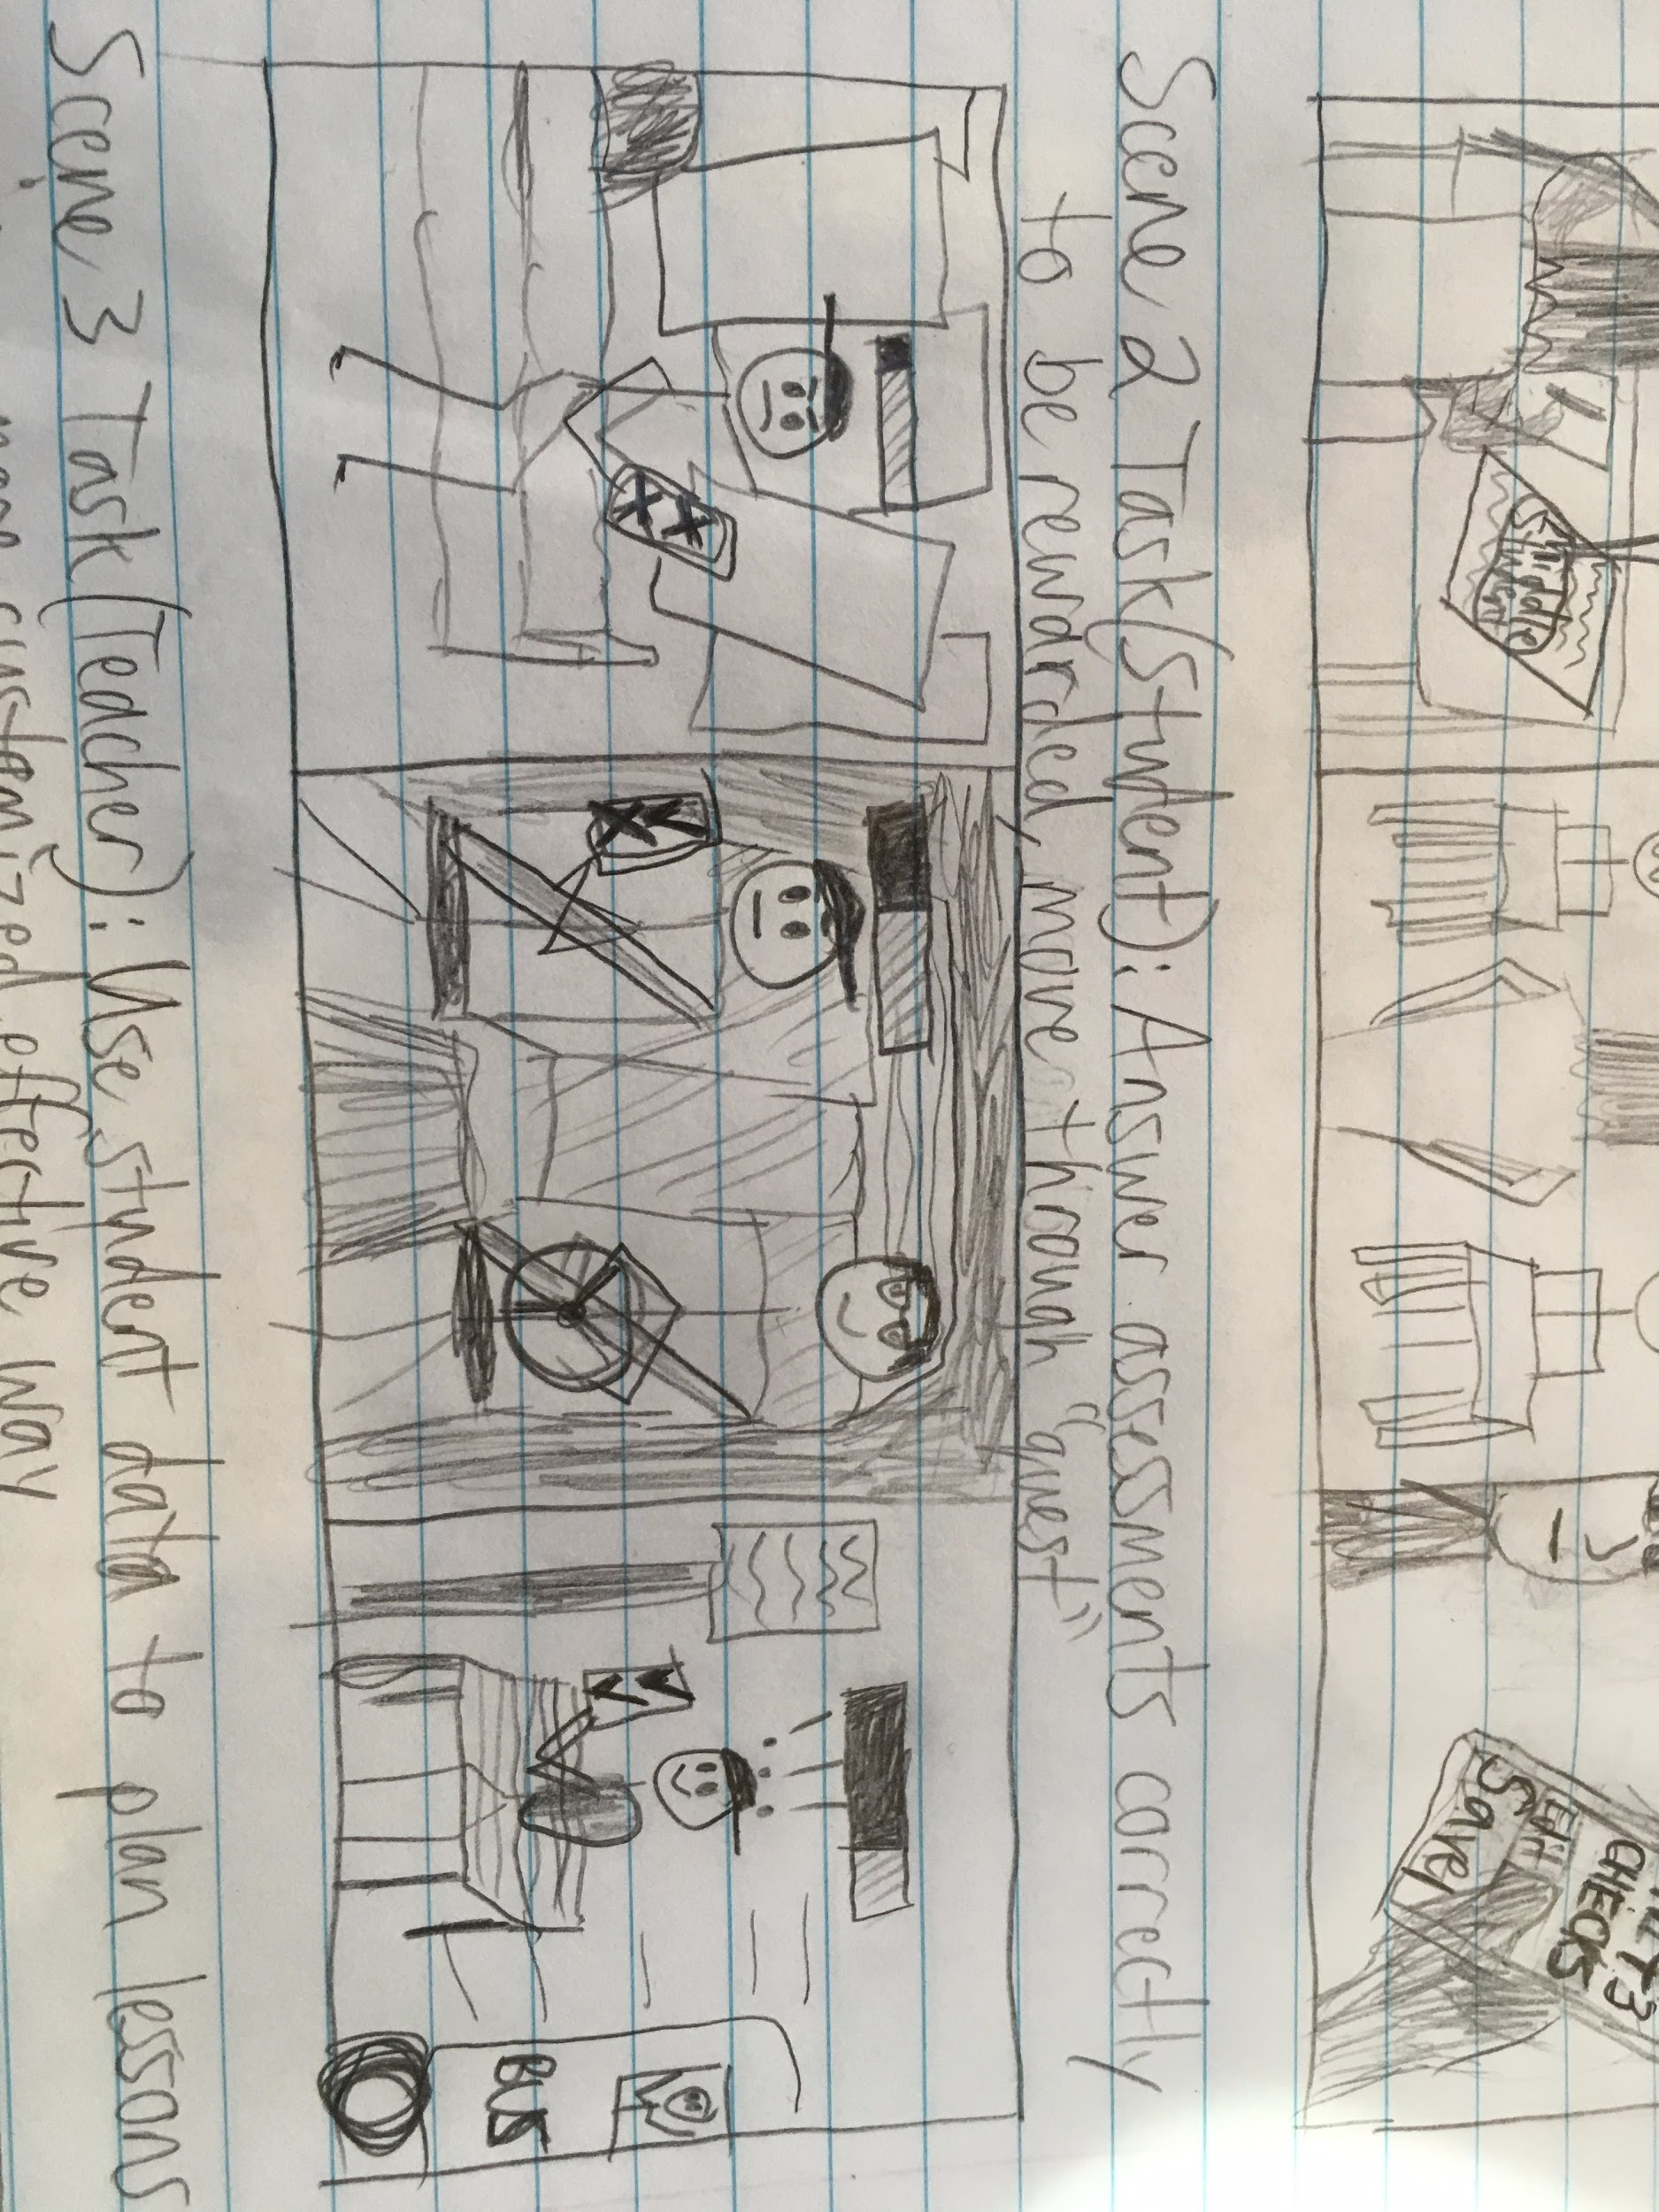 CHECKS
Edit
Save
Scene 2 Task (Student): Answer assessments correctly
to be rewarded, move through "quest"
XX
X
BUS
Scene 3 Task (Teacher): Use student data to plan lessons
customized effective way